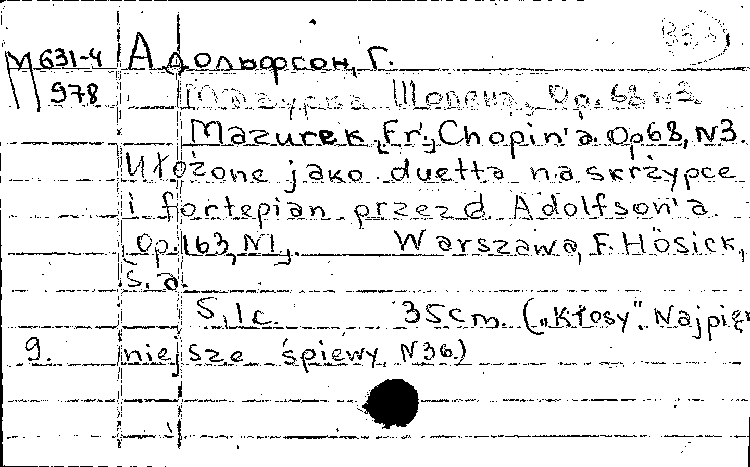 М631-4 Адольфсон, Г.
978 Мазурка Шопена, Op. 68 №3
Mazurek [Fr.] Chopin'a. Op68, N3.
Ułożone jako duetta na skrzypce
i fortepian przez d Adolfson'a.
[Op. 163, N1]. Warszawa, F. Hösick,
s.a.
5,1c. 35cm. („Kłosy". Najpięk
9. niejsze śpiewy, N36.)